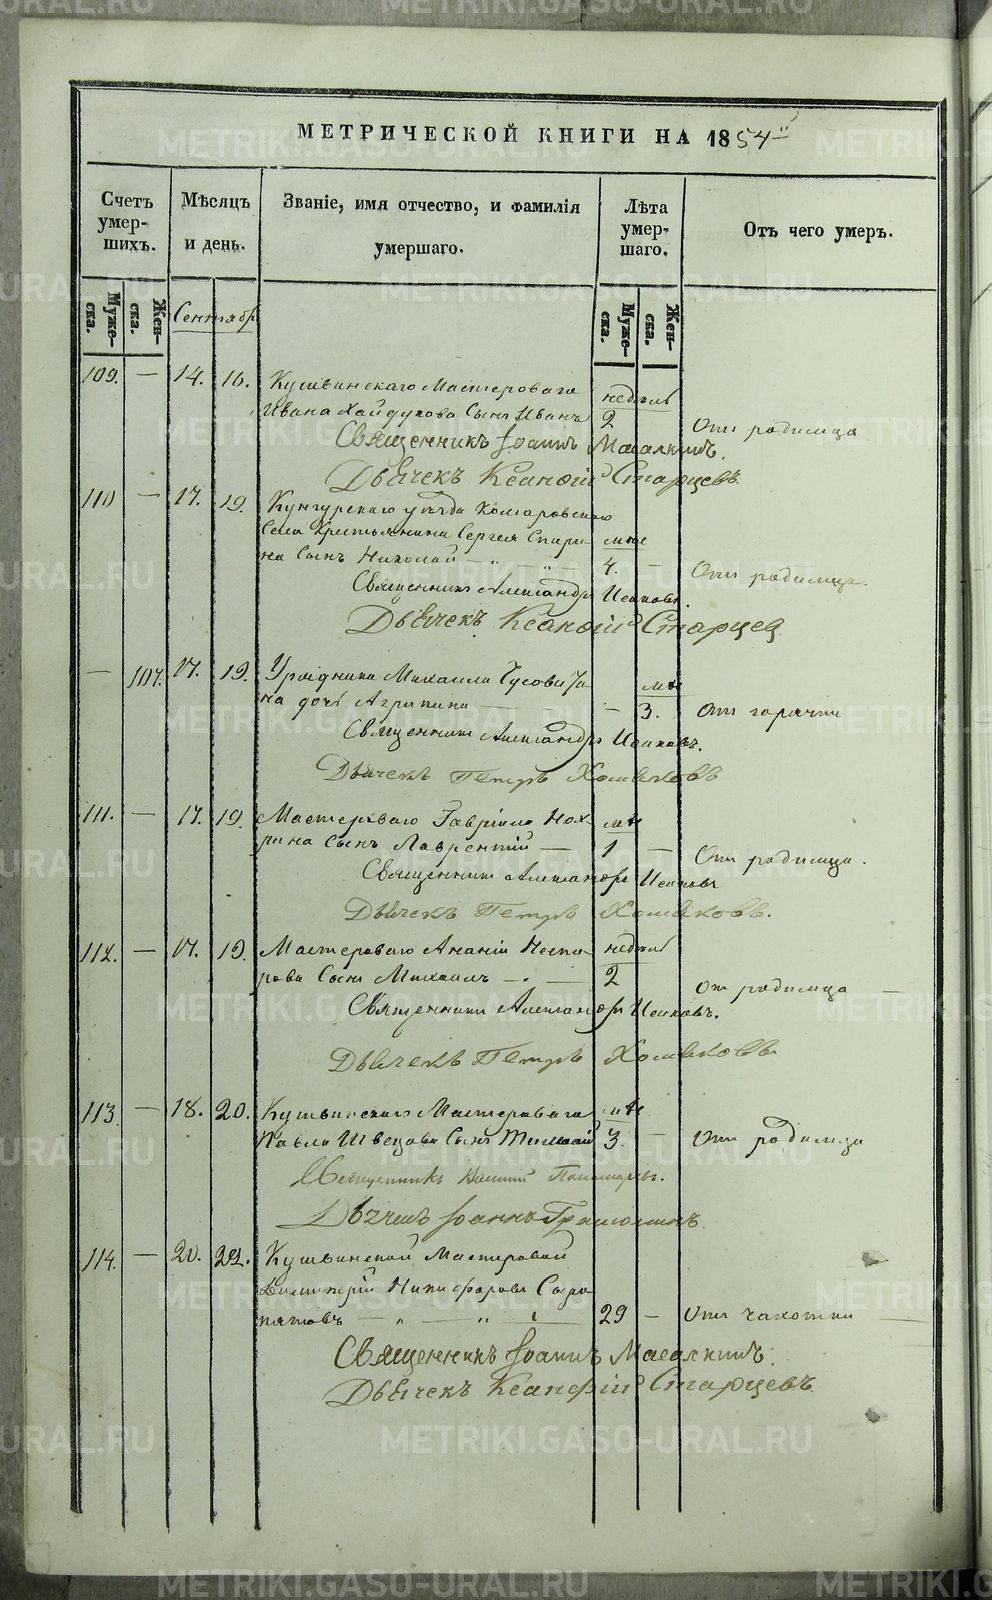 МЕТРИЧЕСКОЙ КНИГИ НА 1854
Счетъ умер-шихъ.
Мѣсяцъ и день.
Званіе, имя отчество, и фамилія умершаго.
Лѣта умер-шаго.
Отъ чего умеръ.
Муже-ска.
Жен-ска.
Сентябр
Муже-ска.
Жен-ска.
109. — 14. 16. Кушвинскаго Мастероваго недѣль
Ивана Хайдукова Сынъ Иванъ 2 Отъ родимца
Священникъ Іоаннъ
Дьячекъ Ксанфій Старцевъ.
110 — 17. 19. Кунгурскаго уѣзда Комаровскаго
Села Крестьянина Сергея Спири мѣс
на Сынъ Николай — „ — „ — 4. — Отъ родимца.
Священникъ Александръ
Дьячекъ Ксанфій Старцев
— 107. 17. 19. Урядника Михаила мѣс
на дочь Агрипина — — 3. Отъ горячки
Священникъ Александръ
Дьячекъ Петръ Хомяковъ
111. — 17. 19. Мастероваго Гавріила мѣс
рина Сынъ Лаврентій — 1 — Отъ родимца.
Священникъ Александръ
Дьячекъ Петръ Хомяковъ.
112. — 17. 19. Мастероваго Ананіи Несто недѣль
рова Сынъ Михаилъ — 2 От родимца —
Священникъ Александръ
Дьячекъ Петръ Хомяковъ
113. — 18. 20. Кушвинскаго Мастероваго мѣс
Павла Швецова Сынъ 3. — Отъ родимца
Священникъ Пономаревъ.
Дьячекъ Іоаннъ
114. — 20. 22. Кушвинской Мастеровой
Димитрій Никифоровъ Сыро
пятовъ — „ — „ — 29 — Отъ чахотки —
Священникъ Іоаннъ
Дьячекъ Ксанфій Старцевъ
METRIKI.GASO-URAL.RU